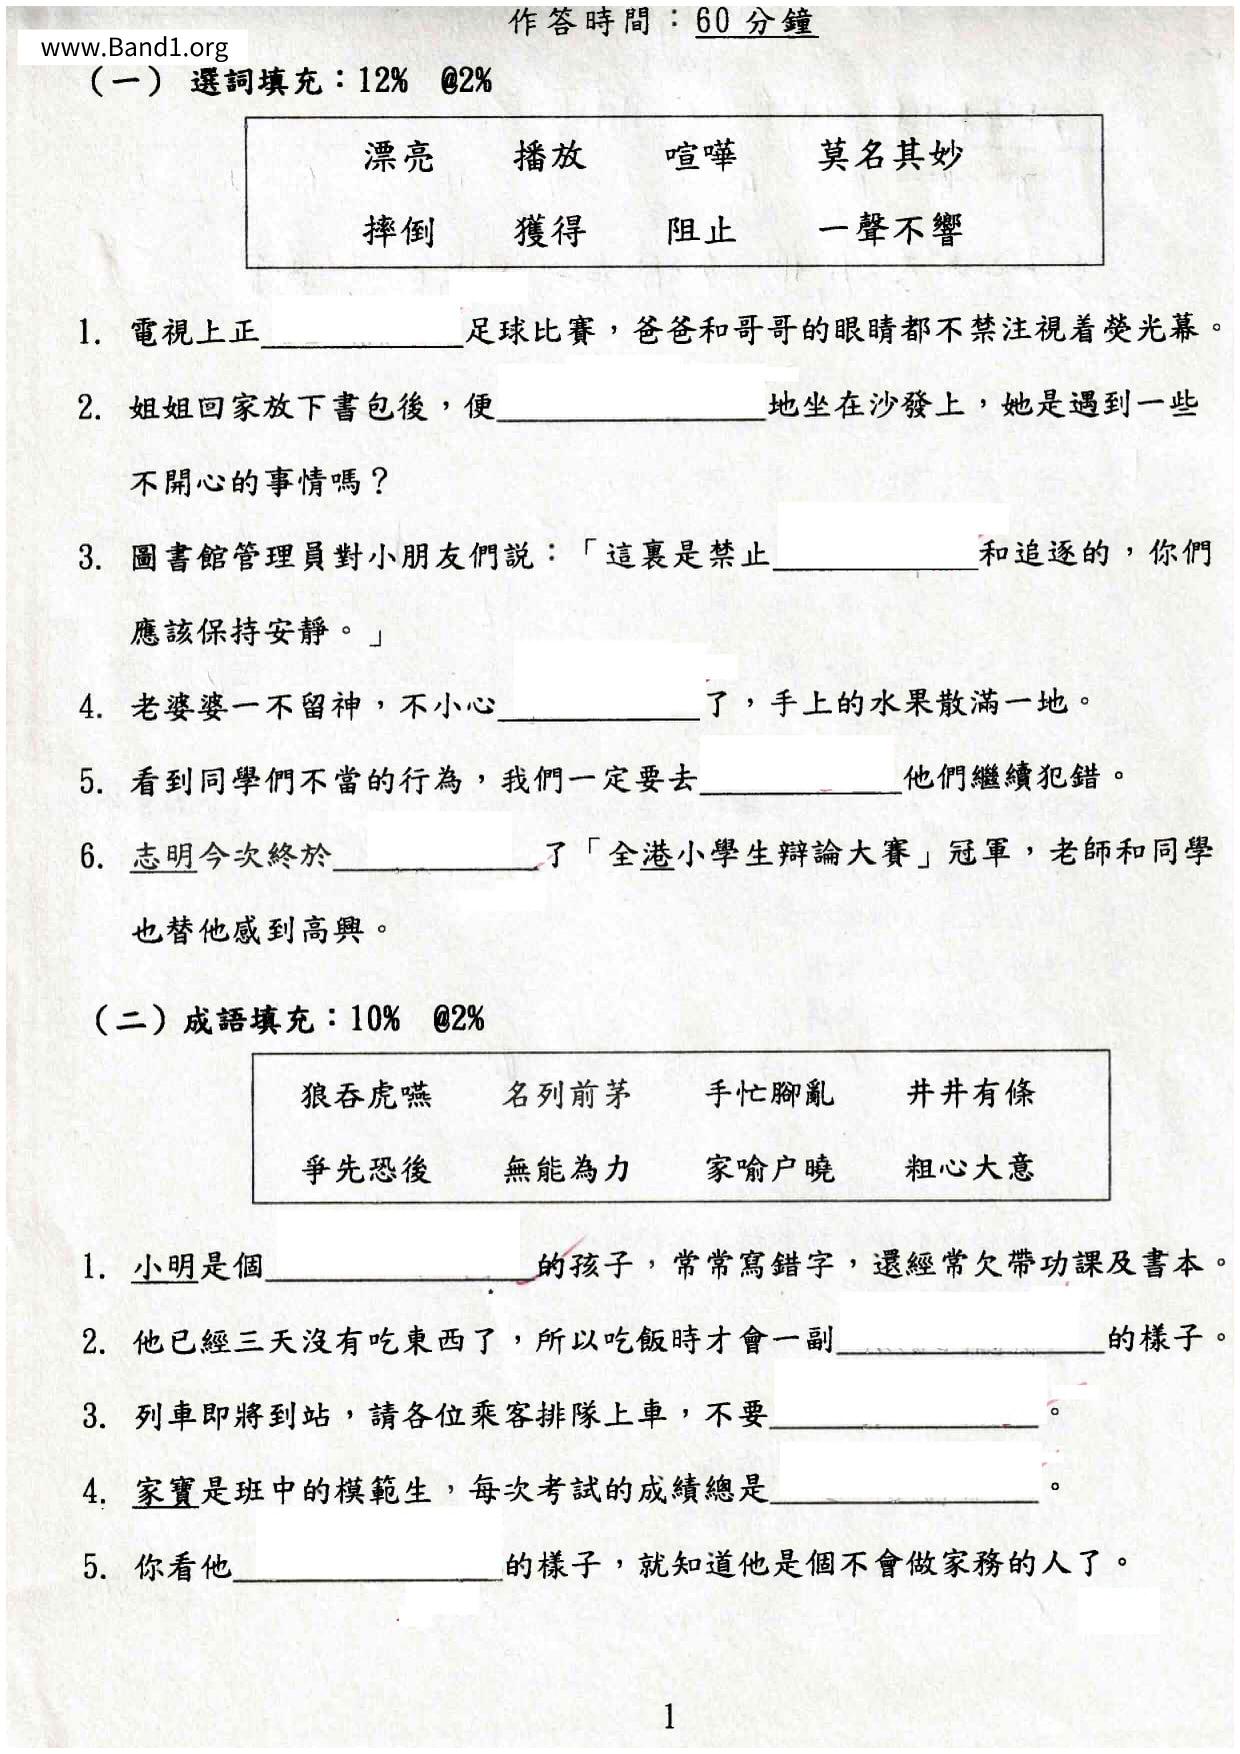 作答時間：60 分鐘
www.Band1.org
（一） 選詞填充：12% @2%
漂亮 播放 喧嘩 莫名其妙
摔倒 獲得 阻止 一聲不響
1. 電視上正____________足球比賽，爸爸和哥哥的眼睛都不禁注視着熒光幕。
2. 姐姐回家放下書包後，便________________地坐在沙發上，她是遇到一些
不開心的事情嗎？
3. 圖書館管理員對小朋友們説：「這裏是禁止____________和追逐的，你們
應該保持安靜。」
4. 老婆婆一不留神，不小心____________了，手上的水果散滿一地。
5. 看到同學們不當的行為，我們一定要去____________他們繼續犯錯。
6. 志明今次終於____________了「全港小學生辯論大賽」冠軍，老師和同學
也替他感到高興。
（二）成語填充：10% @2%
狼吞虎嚥 名列前茅 手忙腳亂 井井有條
爭先恐後 無能為力 家喻户曉 粗心大意
1. 小明是個________________的孩子，常常寫錯字，還經常欠帶功課及書本。
2. 他已經三天沒有吃東西了，所以吃飯時才會一副________________的樣子。
3. 列車即將到站，請各位乘客排隊上車，不要________________。
4. 家寶是班中的模範生，每次考試的成績總是________________。
5. 你看他________________的樣子，就知道他是個不會做家務的人了。
1